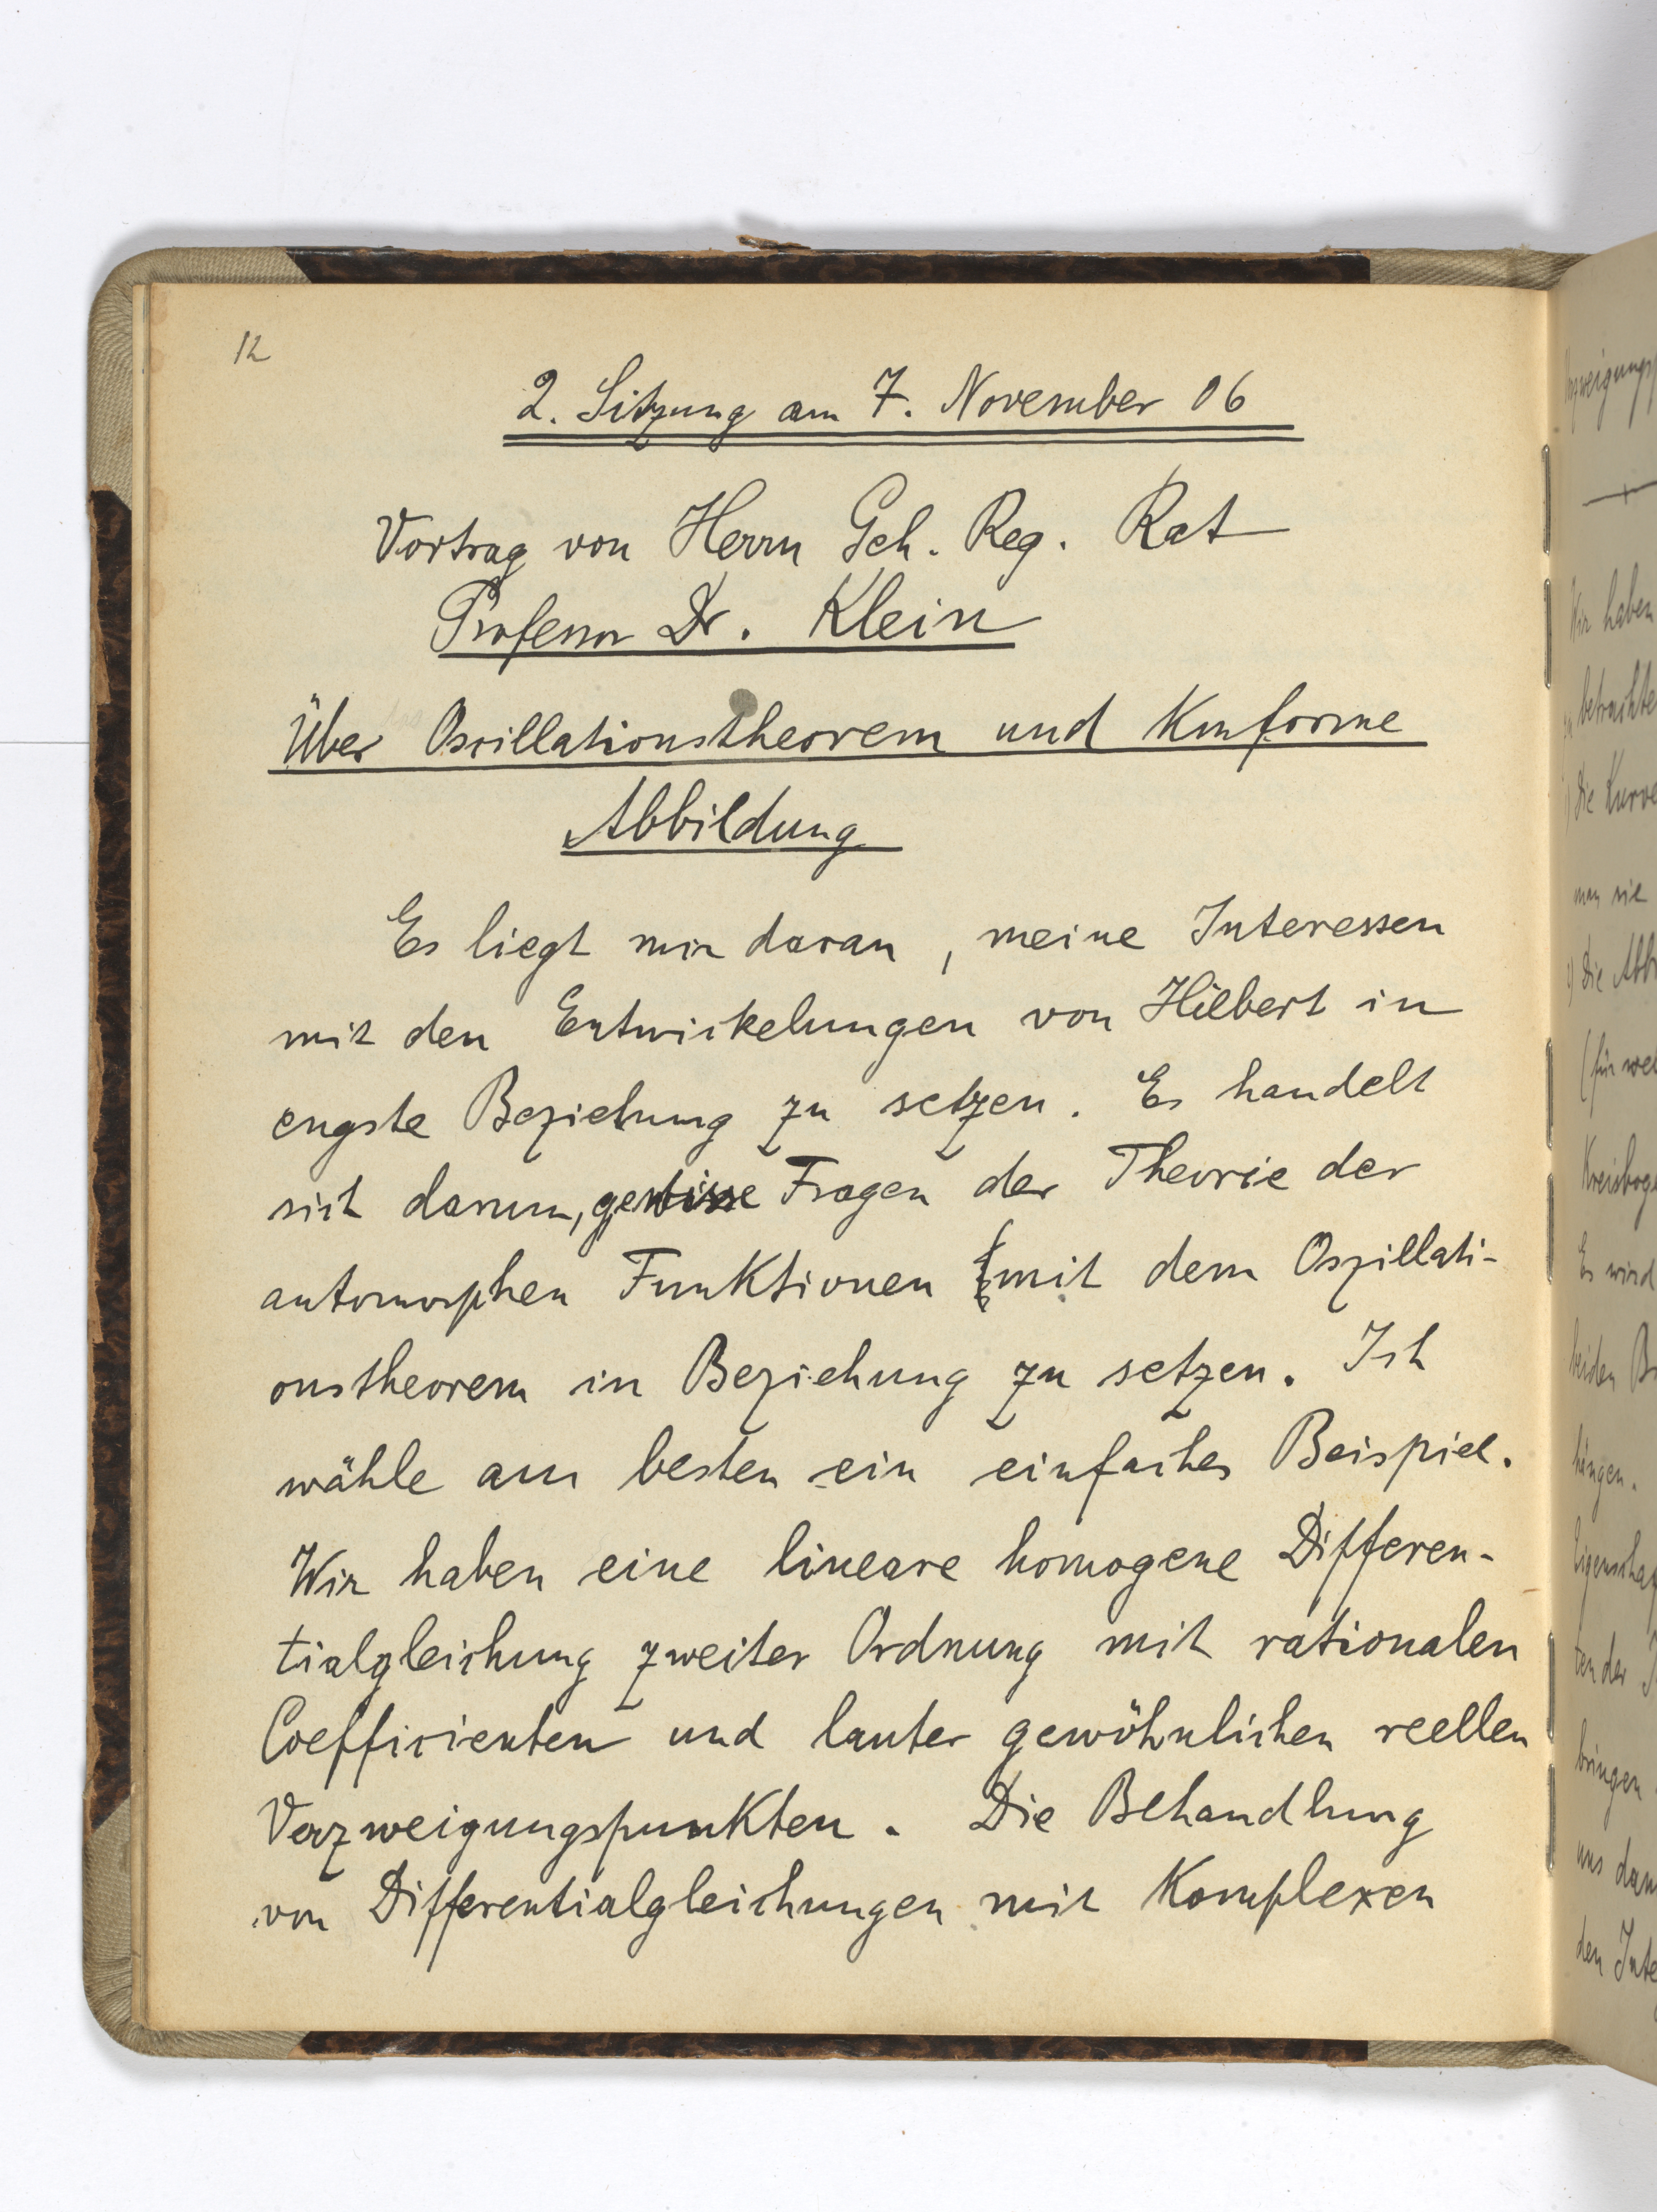 12
2. Sitzung am 7. November 06
Vortrag von Herrn Geh. Reg. Rat
Professor Dr. Klein
Über Oscillationstheorem und Konforme
Abbildung
Es liegt mir daran, meine Interessen
mit den Entwickelungen von Hilbert in
engste Beziehung zu setzen. Es handelt
sich darum, gewisse Fragen der Theorie der
automorphen Funktionen mit dem Oszillati-
onstheorem in Beziehung zu setzen. Ich
wähle am besten ein einfaches Beispiel.
Wir haben eine lineare homogene Differen-
tialgleichung zweiter Ordnung mit rationalen
Coefficienten und lauter gewöhnlichen reellen
Verzweigungspunkten. Die Behandlung
von Differentialgleichungen mit Komplexen
haben
betrachte
Die Kurve
man sie
Die
(für
Es wird
beiden
hängen.
der
bringen
uns
den